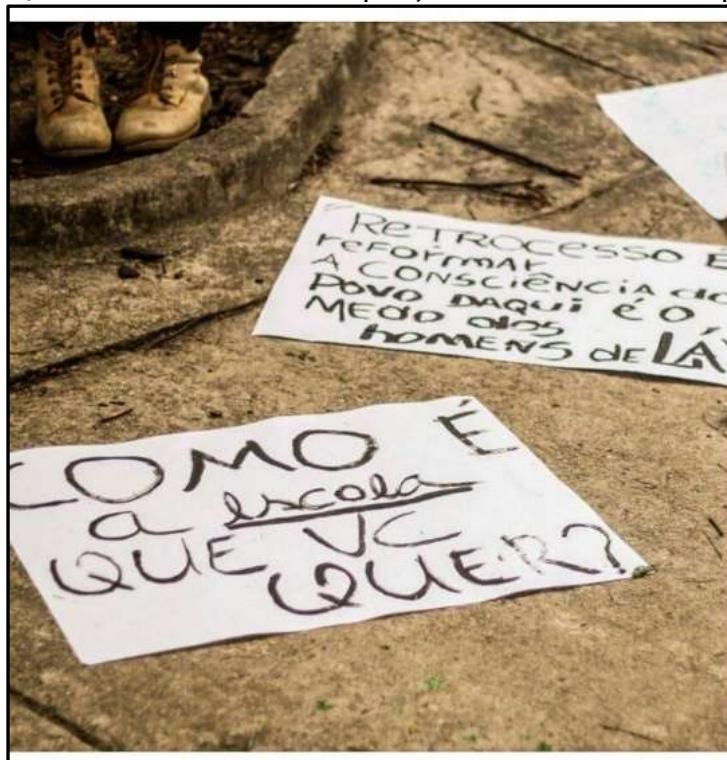 RETROCESSO É
REFORMAR
A CONSCIÊNCIA do
POVO DAQUI É O
MEDO dos
HOMENS DE LÁ
COMO É
a escola
QUE VC
QUER?